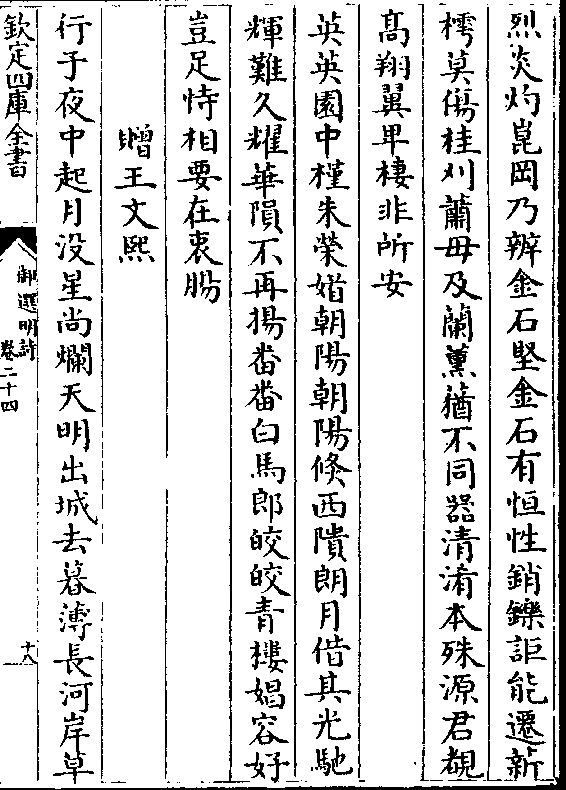 烈炎灼崑岡乃辨金石堅金石有恒性銷鑠詎能遷新
樗莫傷桂刈蘭毋及蘭薰蕕不同器清淆本殊源君覩
髙翔翼卑棲非所安
英英園中槿朱榮媚朝陽朝陽倐西隤朗月偕其光馳
輝難久耀華隕不再揚畨畨白馬郎皎皎青樓娼容好
豈足恃相要在衷腸
贈王文熙
行子夜中起月没星尚爛天明出城去暮薄長河岸草
欽定四庫全書
御選明詩
卷二十四
十八